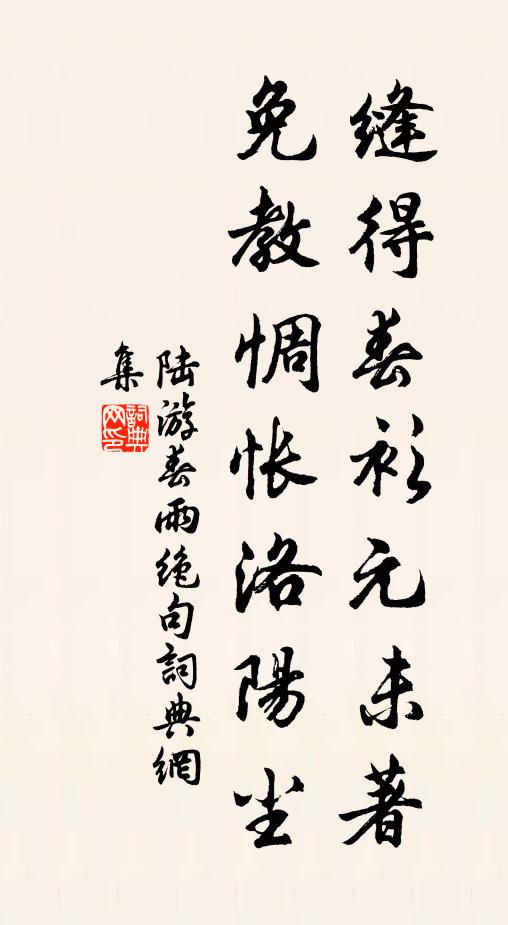 縫得春衫元未著
免教惆怅洛陽尘
陆游春雨绝句詞典網
集
詞典
网印